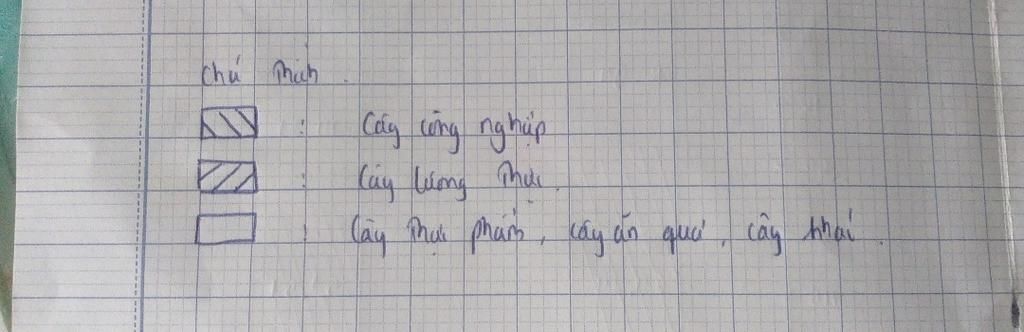 Chú thích.
: Cây công nghiệp
: Cây lương thực.
: Cây thực phẩm, cây ăn quả, cây khác.